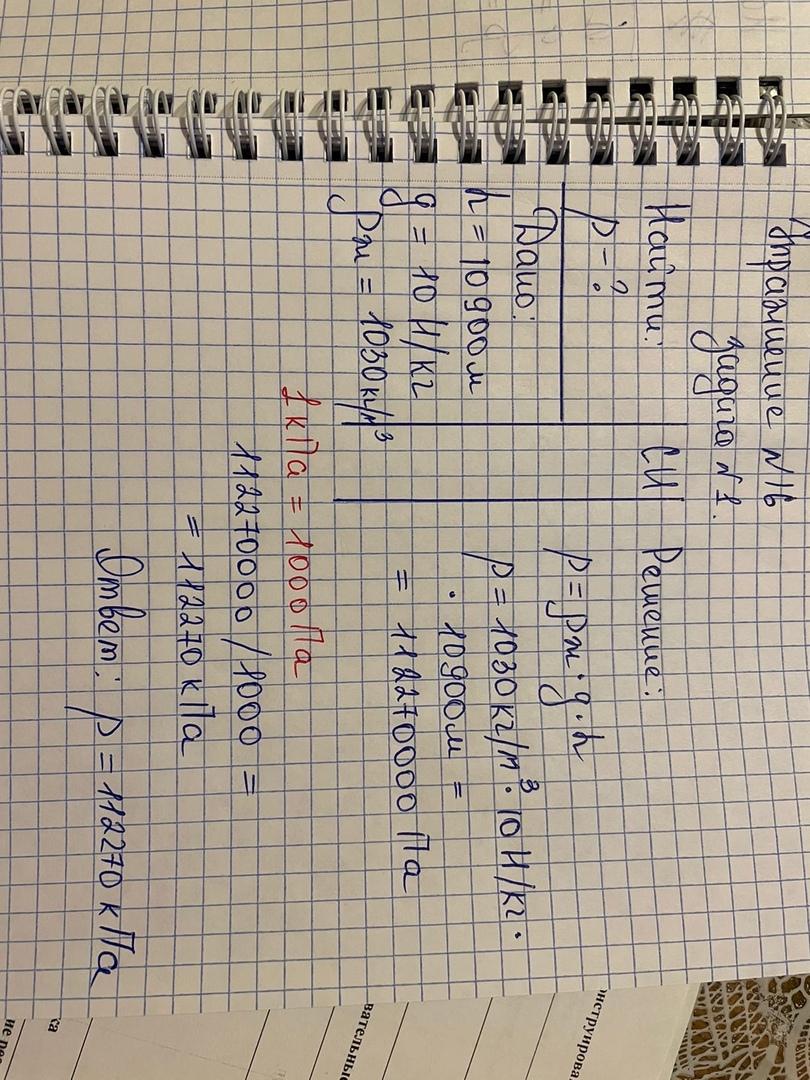 Упражнение №16
Задача №1.
Найти:
p - ?
Дано:
h = 10900м
g = 10 Н/кг
ρж = 1030кг/м³
СИ
Решение:
p = ρж · g · h
p = 1030кг/м³ · 10 Н/кг ·
· 10900м =
= 112270000 Па
1 кПа = 1000 Па
112270000 / 1000 =
= 112270 кПа
Ответ: p = 112270 кПа
нструирова
вательны
ка
не рес